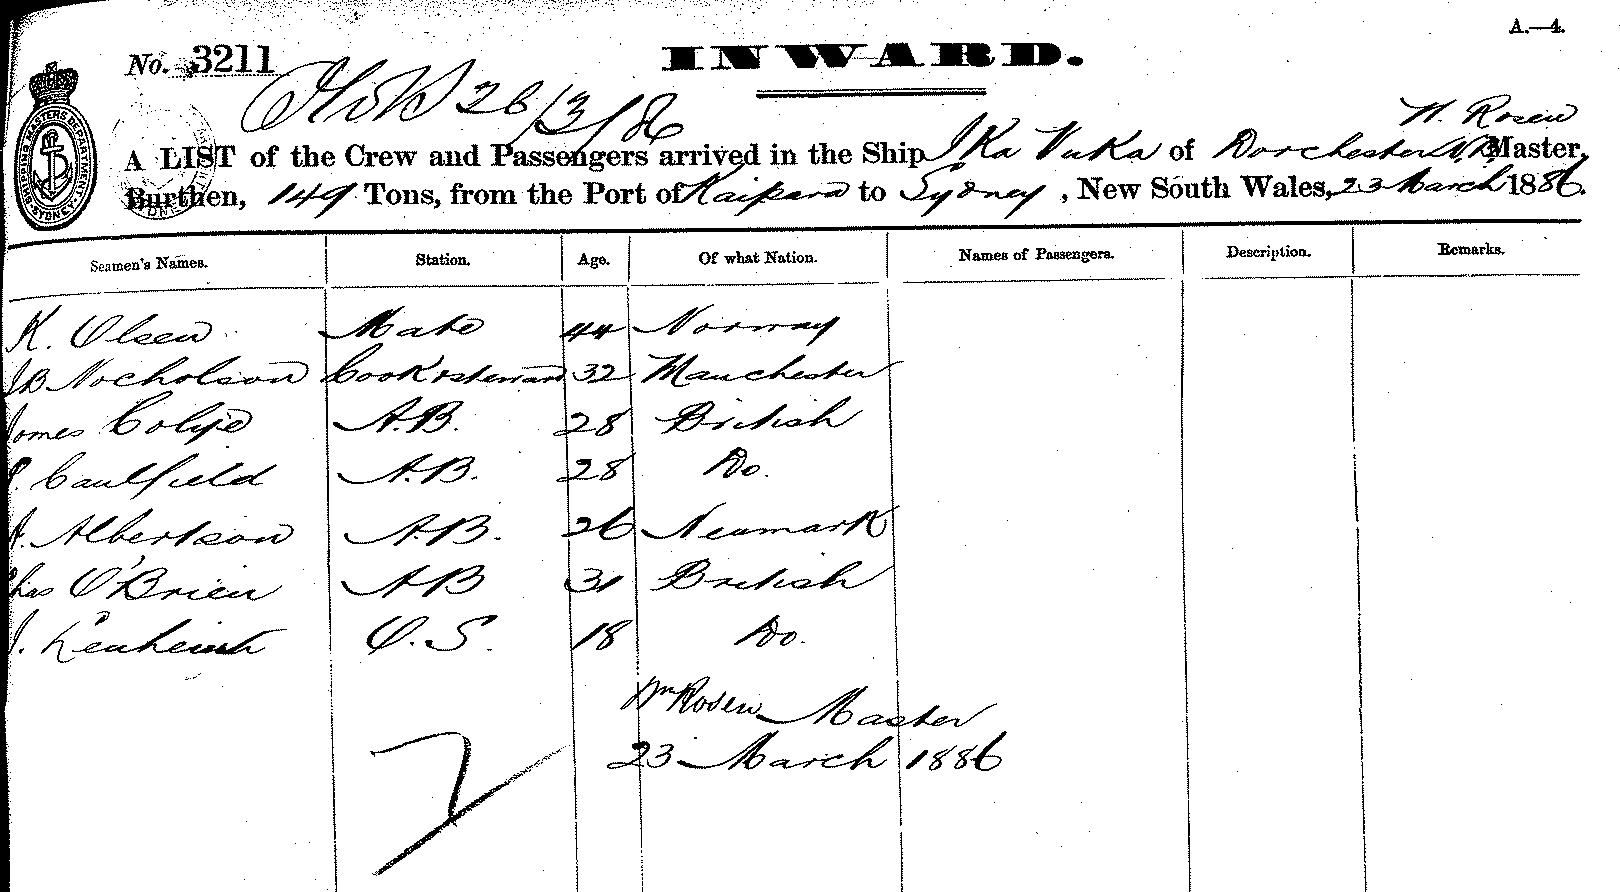 A.—4.
No. 3211 INWARD.
26/3/86
W. Rosen
A LIST of the Crew and Passengers arrived in the Ship Ika Vuka of Dorchester N.B. Master,
Burthen, 149 Tons, from the Port of Kaipara to Sydney, New South Wales, 23 March 1886.
SHIPPING MASTERS DEPARTMENT SYDNEY
Seamen's Names. Station. Age. Of what Nation. Names of Passengers. Description. Remarks.
K. Olsen Mate 44 Norway
JB Nocholson Cook & steward 32 Manchester
James A.B. 28 British
Caulfield A.B. 28 Do.
A. Albertson A.B. 26 Neumark
Chas O'Brien AB 31 British
J. O.S. 18 Do.
Wm Rosen Master
23 March 1886
7